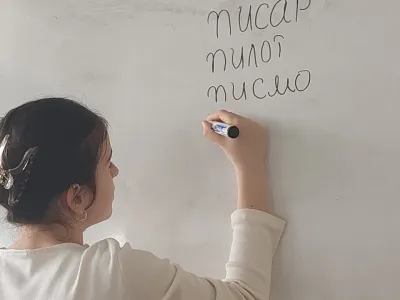 писар
пилот
писмо